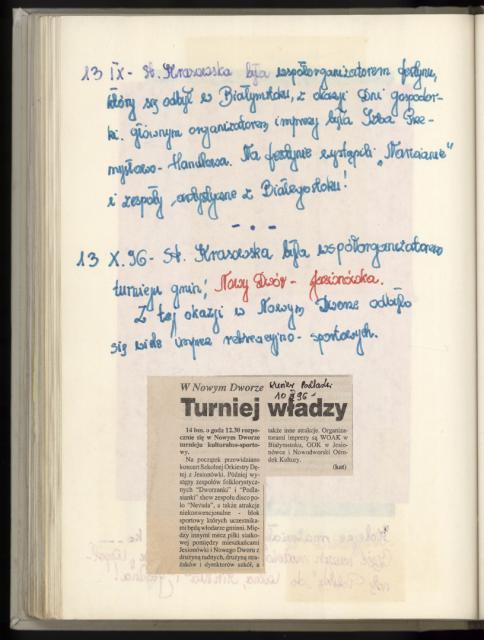 13 IX - St. Krasowska była współorganizatorem festynu,
który się odbył w Białymstoku, z okazji Dni gospodar-
ki. głównym organizatorem imprezy była Izba Prze-
mysłowo - Handlowa. Na festynie wystąpili „Marcianie"
i zespoły artystyczne z Białegostoku!
- • -
13 X. 96 - St. Krasowska była współorganizatorem
turnieju gmin; Nowy Dwór - Jasionówka.
Z tej okazji w Nowym Dworze odbyło
się wiele imprez rekreacyjno - sportowych.
W Nowym Dworze Kurier Podlaski
10 96 -
Turniej władzy
14 bm. o godz 12.30 rozpo-
cznie się w Nowym Dworze
turnieju kulturalno-sporto-
wy.
Na początek przewidziano
koncert Szkolnej Orkiestry Dę-
tej z Jesionówki. Później wy-
stępy zespołów folklorystycz-
nych "Dworzanki" i "Podla-
sianki" show zespołu disco po-
lo "Nevada", a także atrakcje
niekonwencjonalne - blok
sportowy których uczestnika-
mi będą włodarze gminni. Mię-
dzy innymi mecz piłki siatko-
wej pomiędzy mieszkańcami
Jesionówki i Nowego Dworu z
drużyną radnych, drużyną stra-
żaków i dyrektorów szkół, a
także inne atrakcje. Organiza-
torami imprezy są WOAK w
Białymstoku, GOK w Jesio-
nówce i Nowodworski Ośro-
dek Kultury.
(kat)